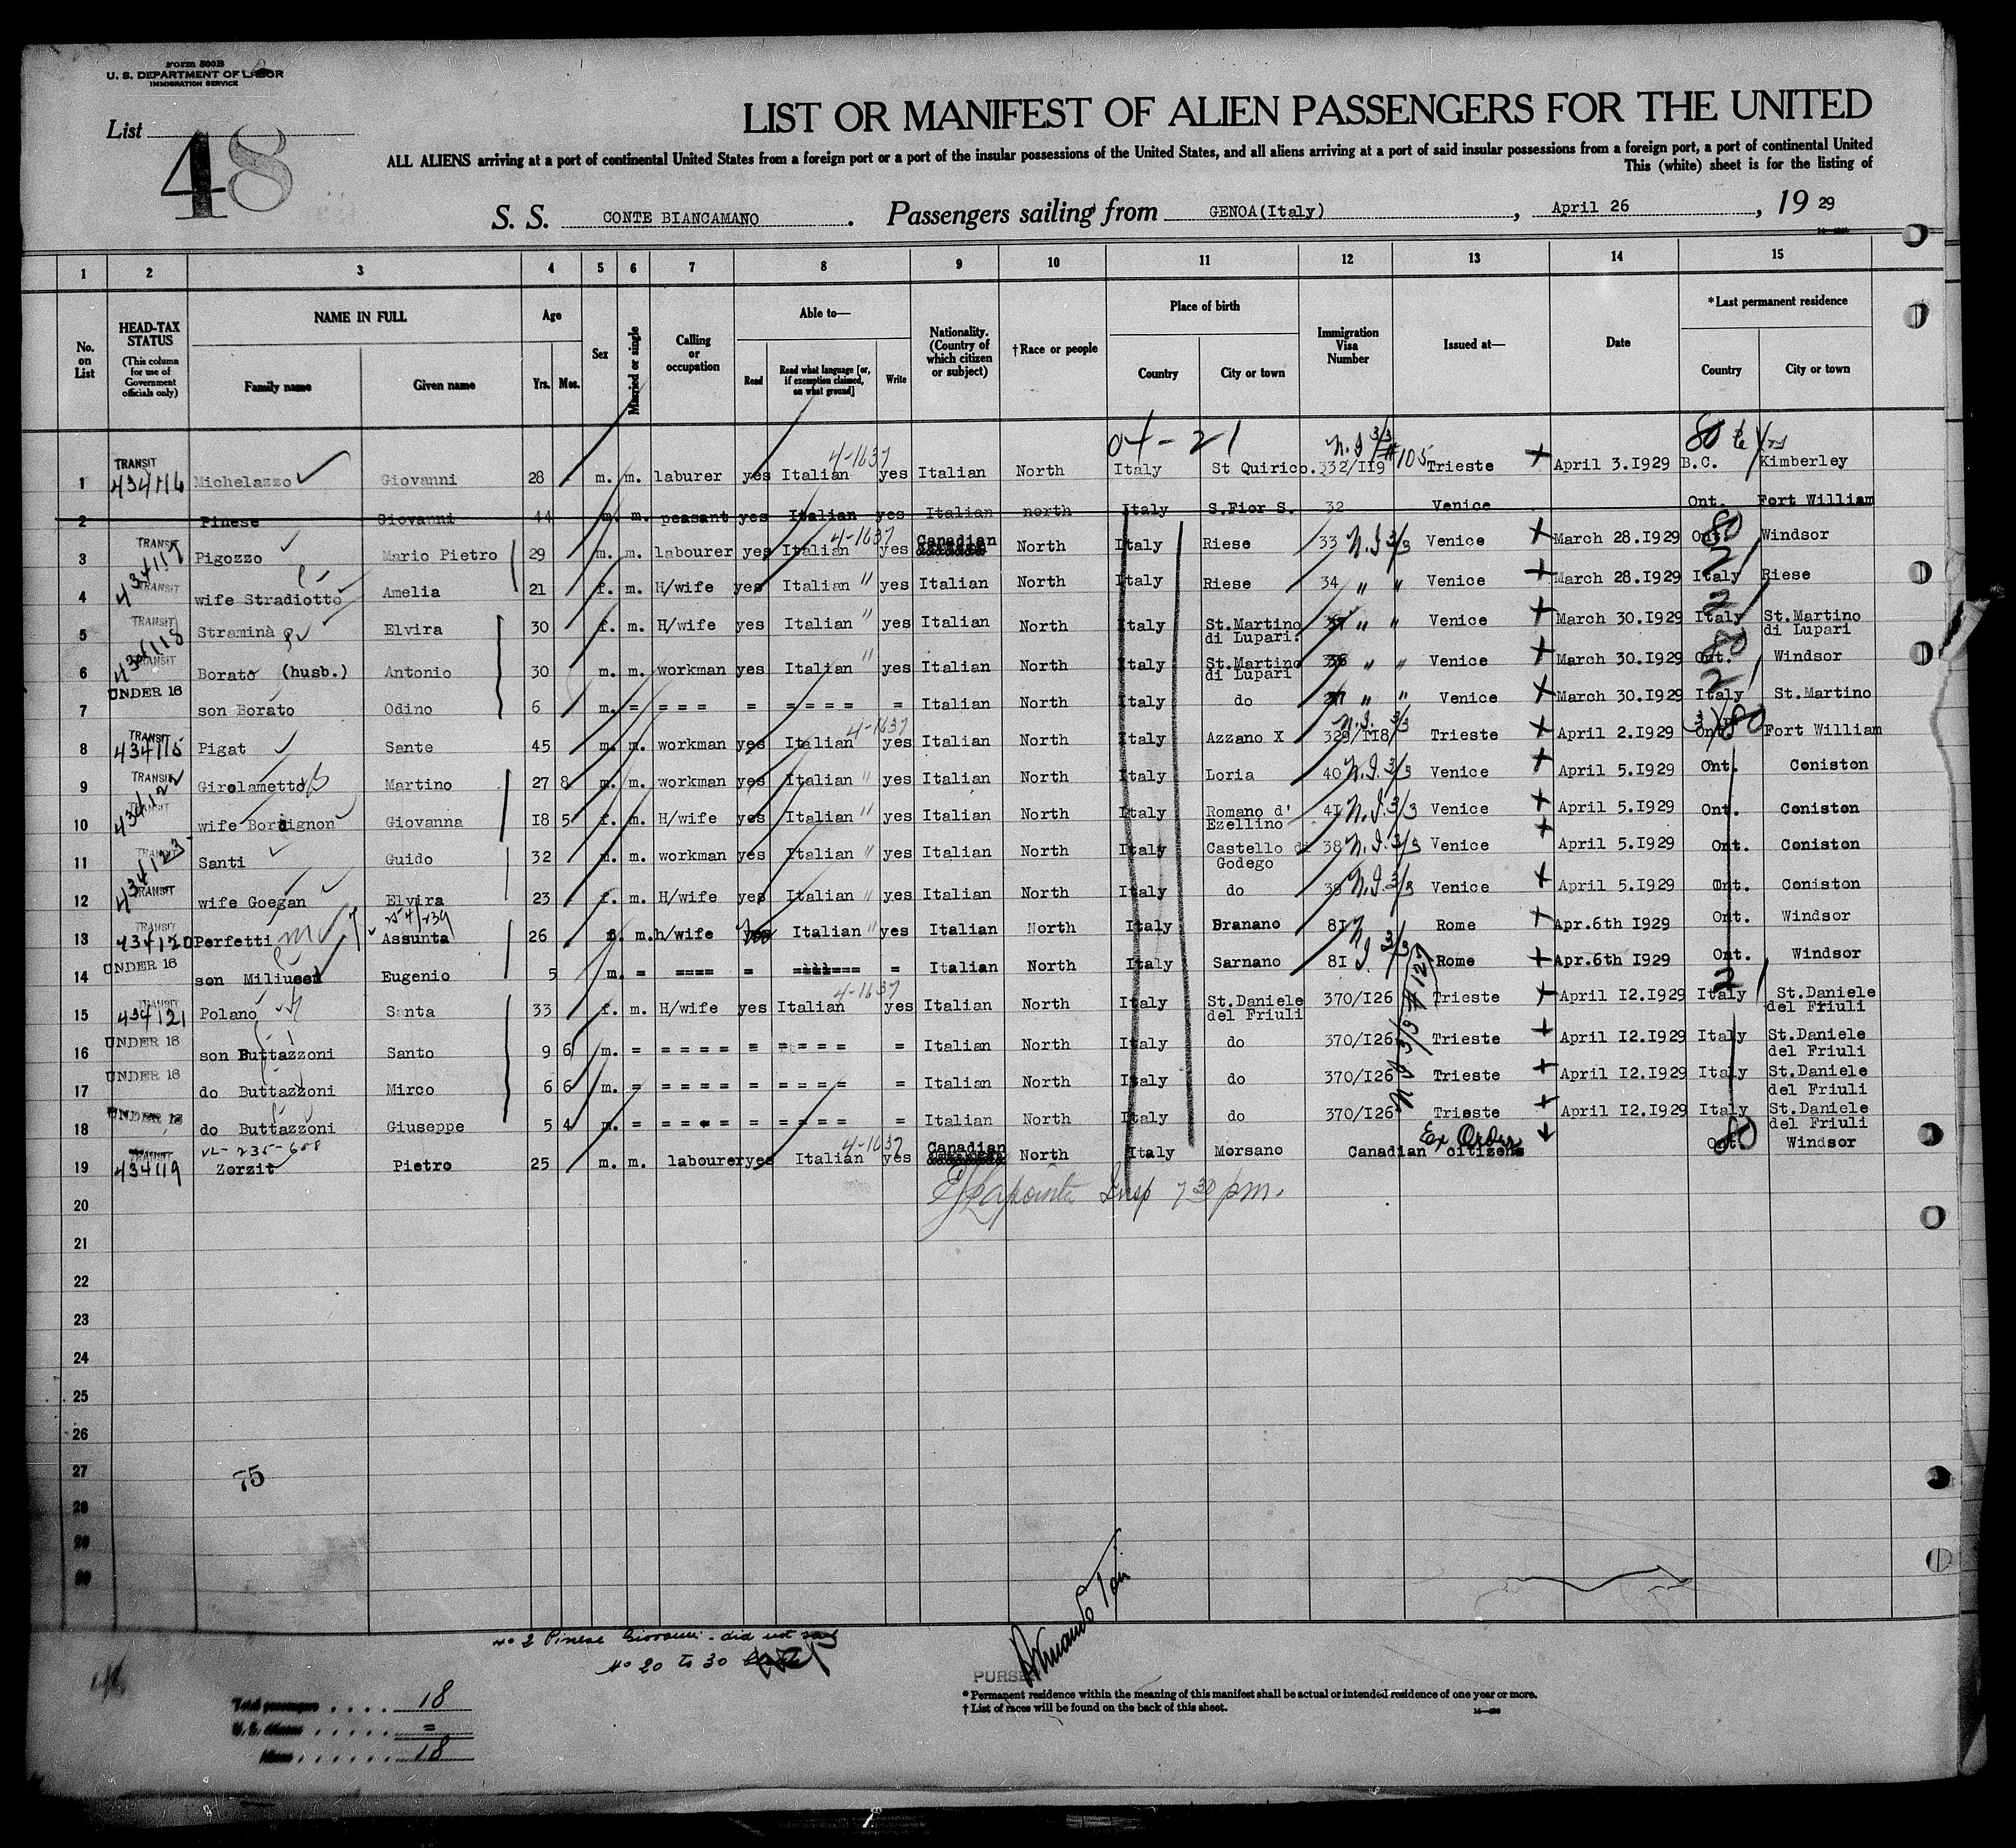 Form 500B
U. S. DEPARTMENT OF LABOR
IMMIGRATION SERVICE
List
48
LIST OR MANIFEST OF ALIEN PASSENGERS FOR THE UNITED
ALL ALIENS arriving at a port of continental United States from a foreign port or a port of the insular possessions of the United States, and all aliens arriving at a port of said insular possessions from a foreign port, a port of continental United
This (white) sheet is for the listing of
S. S. CONTE BIANCAMANO. Passengers sailing from GENOA(Italy), April 26, 19 29
1 2 3 4 5 6 7 8 9 10 11 12 13 14 15
No. on List
HEAD-TAX STATUS
(This column for use of Government officials only)
NAME IN FULL
Family name
Given name
Age
Yrs. Mos.
Sex
Married or single
Calling or occupation
Able to—
Read
Read what language [or, if exemption claimed, on what ground]
Write
Nationality. (Country of which citizen or subject)
†Race or people
Place of birth
Country
City or town
Immigration Visa Number
Issued at—
Date
*Last permanent residence
Country
City or town
04-21
1 TRANSIT 434116 Michelazzo Giovanni 28 m. m. laburer yes Italian 4-1637 yes Italian North Italy St Quirico. 332/119 N.I 3/3 #105 Trieste April 3.1929 B.C. Kimberley
2 Pinese Giovanni 44 m. m. peasant yes Italian yes Italian north Italy S.Fior S. 32 Venice Ont. Fort William
3 TRANSIT 434117 Pigozzo Mario Pietro 29 m. m. labourer yes Italian 4-1637 yes Canadian North Italy Riese 33 N.I 3/3 Venice March 28.1929 Ont. 80 Windsor
4 TRANSIT wife Stradiotto Amelia 21 f. m. H/wife yes Italian " yes Italian North Italy Riese 34 " " Venice March 28.1929 Italy Riese
5 TRANSIT 434118 Straminà Elvira 30 f. m. H/wife yes Italian " yes Italian North Italy St.Martino di Lupari. " " Venice March 30.1929 Italy St.Martino di Lupari
6 TRANSIT Borato (husb.) Antonio 30 m. m. workman yes Italian " yes Italian North Italy St.Martino di Lupari 36 " " Venice March 30.1929 Ont. 80 Windsor
7 UNDER 16 son Borato Odino 6 m. = = = = = = = = = = Italian North Italy do " " Venice March 30.1929 Italy St.Martino
8 TRANSIT 434115 Pigat Sante 45 m. m. workman yes Italian 4-1637 yes Italian North Italy Azzano X 329/118 N.I. 3/3 Trieste April 2.1929 Ont. 80 Fort William
9 TRANSIT 434122 Girolametto Martino 27 8 m. m. workman yes Italian " yes Italian North Italy Loria 40 N.I. 3/3 Venice April 5.1929 Ont. Coniston
10 TRANSIT wife Bordignon Giovanna 18 5 f. m. H/wife yes Italian " yes Italian North Italy Romano d' Ezellino 41 N.I. 3/3 Venice April 5.1929 Ont. Coniston
11 TRANSIT 434123 Santi Guido 32 m. m. workman yes Italian " yes Italian North Italy Castello di Godego 38 N.I. 3/3 Venice April 5.1929 Ont. Coniston
12 TRANSIT wife Goegan Elvira 23 f. m. H/wife yes Italian " yes Italian North Italy do 39 N.I. 3/3 Venice April 5.1929 Ont. Coniston
13 TRANSIT 434120 Perfetti Assunta 26 m. h/wife yes Italian " yes Italian North Italy 81 Rome Apr.6th 1929 Ont. Windsor
14 UNDER 16 son Eugenio 5 m. = ==== = = Italian North Italy Sarnano 81 N I 3/3 Rome Apr.6th 1929 Ont. Windsor
15 TRANSIT 434121 Polano Santa 33 f. m. H/wife yes Italian 4-1637 yes Italian North Italy St.Daniele del Friuli 370/126 Trieste April 12.1929 Italy St.Daniele del Friuli
16 UNDER 16 son Buttazzoni Santo 9 6 m. = = = = = = = = = = = Italian North Italy do 370/126 N I 3/3 #127 Trieste April 12.1929 Italy St.Daniele del Friuli
17 UNDER 16 do Buttazzoni Mirco 6 6 m. = = = = = = = = = = = Italian North Italy do 370/126 Trieste April 12.1929 Italy St.Daniele del Friuli
18 UNDER 16 do Buttazzoni Giuseppe 5 4 m. = = = = = = = = = = = Italian North Italy do 370/126 Trieste April 12.1929 Italy St.Daniele del Friuli
19 TRANSIT 434119 Zorzit Pietro 25 m. m. labourer yes Italian 4-1637 yes Canadian North Italy Morsano Canadian citizens Ex Order Ont. 80 Windsor
20 Lapointe Insp 7 30 pm.
21
22
23
24
25
26
27 75
28
29
30
No 2 Pinese Giovanni - did not sail
No 20 to 30
PURSER
* Permanent residence within the meaning of this manifest shall be actual or intended residence of one year or more.
† List of races will be found on the back of this sheet.
Total passengers . . . . 18
U. S. citizens . . . . . =
Aliens . . . . . . 18